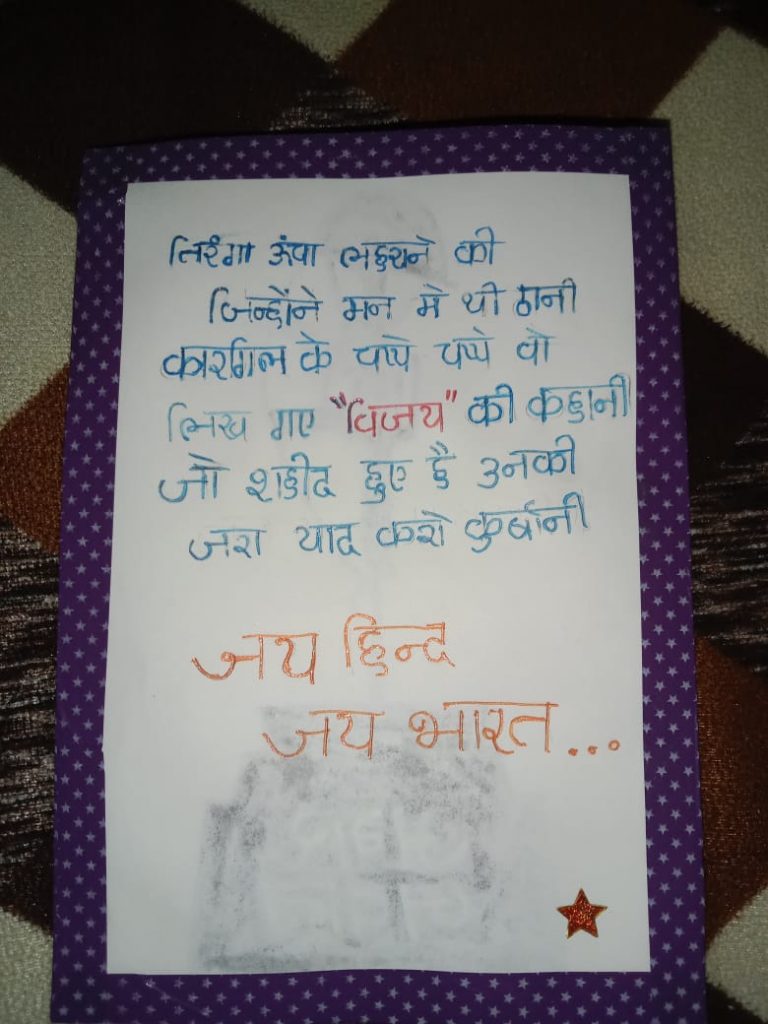 तिरंगा ऊंचा लहराने की
जिन्होंने मन मे थी ठानी
कारगिल के चप्पे चप्पे वो
लिख गए "विजय" की कहानी
जो शहीद हुए है उनकी
जरा याद करो कुर्बानी
जय हिन्द
जय भारत...